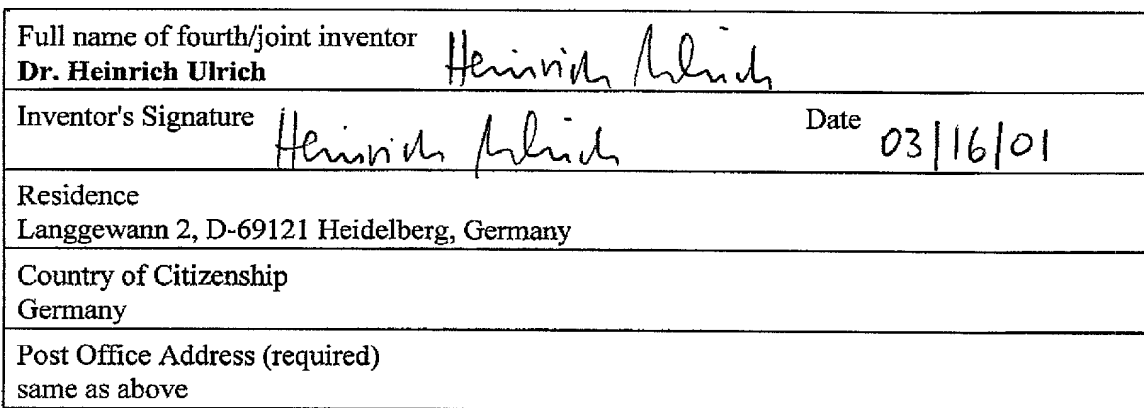 Full name of fourth/joint inventor Heinrich Ulrich
Dr. Heinrich Ulrich
Inventor's Signature Heinrich Ulrich Date 03/16/01
Residence
Langgewann 2, D-69121 Heidelberg, Germany
Country of Citizenship
Germany
Post Office Address (required)
same as above